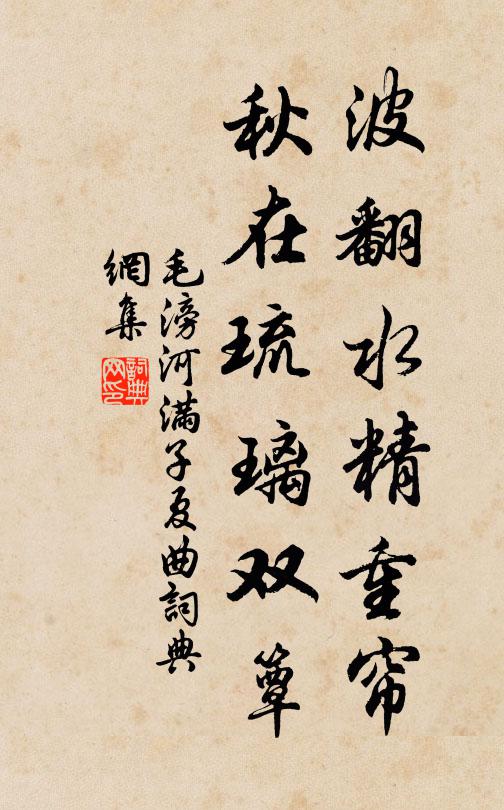 波翻水精重帘
秋在琉璃双簟
毛滂河满子夏曲詞典
網集
詞典
网印